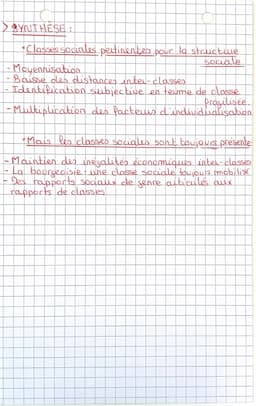 > SYNTHÈSE :
* Classes sociales pertinentes pour la structure
sociale
- Moyennisation
- Baisse des distances inter-classes
- Identification subjective en terme de classe
fragilisée.
- Multiplication des facteurs d'individualisation
* Mais les classes sociales sont toujours présente
- Maintien des inégalités économiques inter-classes
- La bourgeoisie : une classe sociale toujours mobilisé
- Des rapports sociaux de genre articulés aux
rapports de classes.